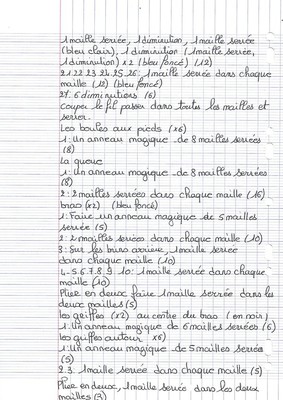 1 maille serrée, 1 diminution, 1 maille serrée
(bleu clair), 1 diminution (1 maille serrée,
1 diminution) x 2 (bleu foncé) (12)
21.22.23.24.25.26: 1 maille serrée dans chaque
maille (12) (bleu foncé)
27: 6 diminutions (6)
couper le fil passer dans toutes les mailles et
serrer.
Les boules aux pieds (x6)
1: Un anneau magique de 8 mailles serrées
(8)
La queue
1: un anneau magique de 8 mailles serrées
(8)
2: 2 mailles serrées dans chaque maille (16)
bras (x2) (bleu foncé)
1: Faire un anneau magique de 5 mailles
serrée (5)
2: 2 mailles serrées dans chaque maille (10)
3: Sur les brins arrière, 1 maille serrée
dans chaque maille (10)
4.5.6.7.8.9.10: 1 maille serrée dans chaque
maille (10)
Plier en deux faire 1 maille serrée dans les
deux mailles (5)
les griffes (x2) au centre du bras (en noir)
1: Un anneau magique de 6 mailles serrées (6)
les griffes autour x6)
1: Un anneau magique de 5 mailles serrées
(5)
2.3: 1 maille serrée dans chaque maille (5)
Plier en deux, 1 maille serrée dans les deux
mailles (3)